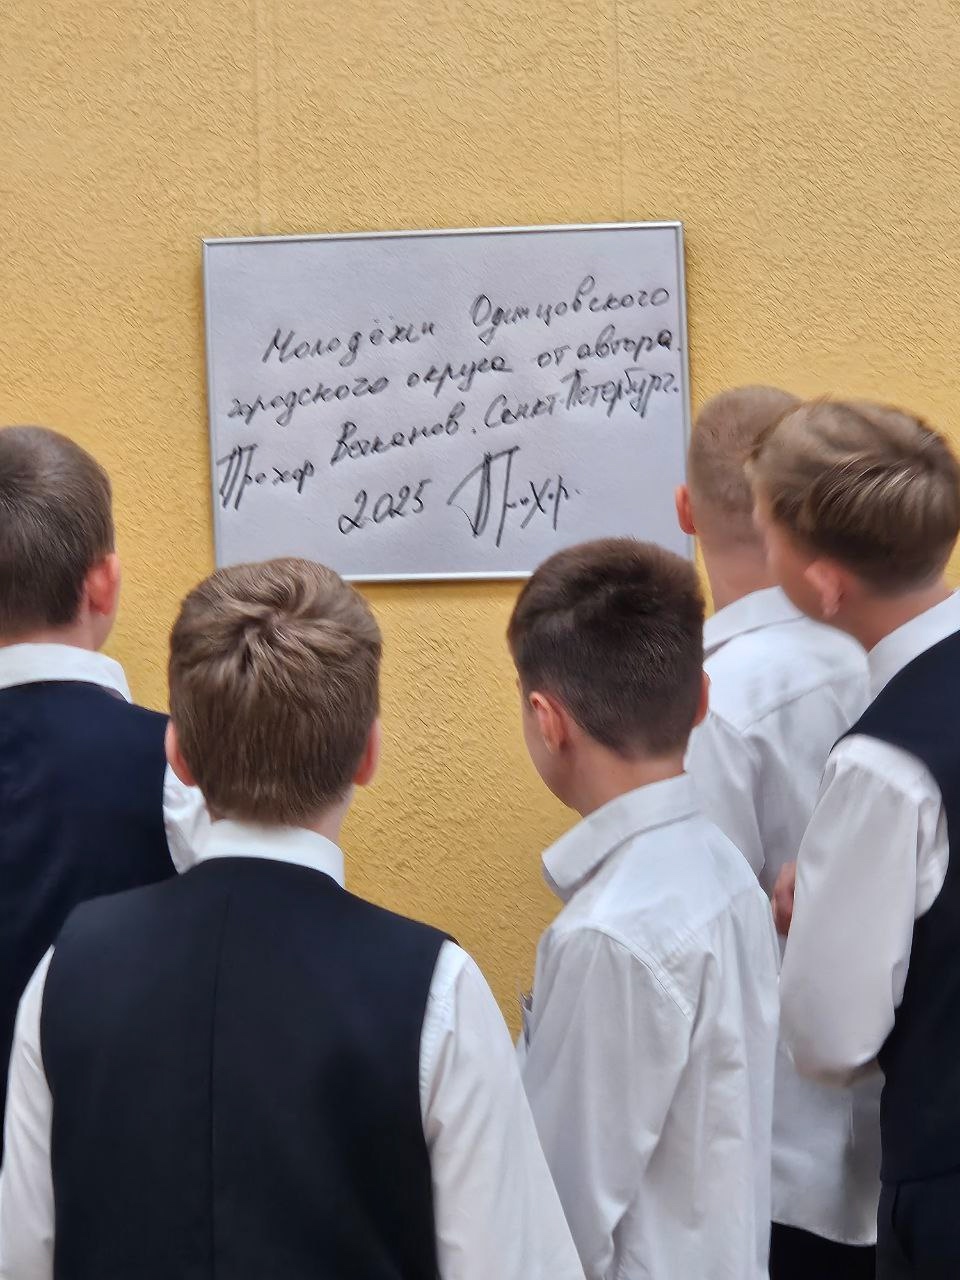 Молодёжи Одинцовского
городского округа от автора.
Прохор Ваканов. Санкт-Петербург.
2025 Прохор.